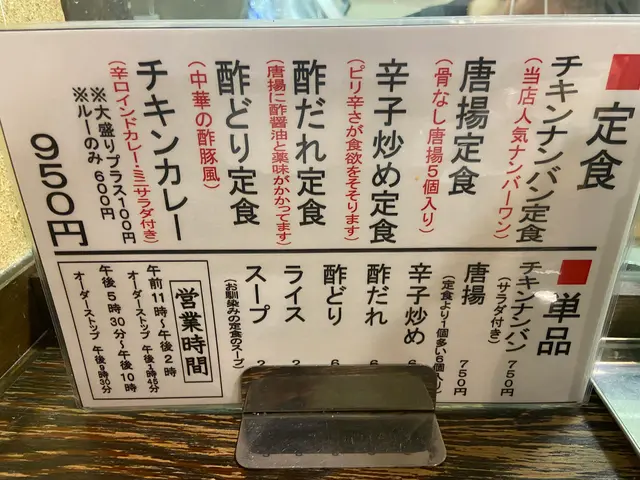 ■定食
チキンナンバン定食
(当店人気ナンバーワン)
唐揚定食
(骨なし唐揚5個入り)
辛子炒め定食
(ピリ辛さが食欲をそそります)
酢だれ定食
(唐揚に酢醤油と薬味がかかってます)
酢どり定食
(中華の酢豚風)
チキンカレー
(辛口インドカレー・ミニサラダ付き)
※大盛りプラス100円
※ルーのみ 600円
950円
■単品
チキンナンバン 750円
(サラダ付き)
唐揚 750円
(定食より1個多い6個入り)
辛子炒め 6
酢だれ 6
酢どり 6
ライス 2
スープ 2
(お馴染みの定食のスープ)
営業時間
午前11時～午後2時
オーダーストップ 午後1時45分
午後5時30分～午後10時
オーダーストップ 午後9時30分